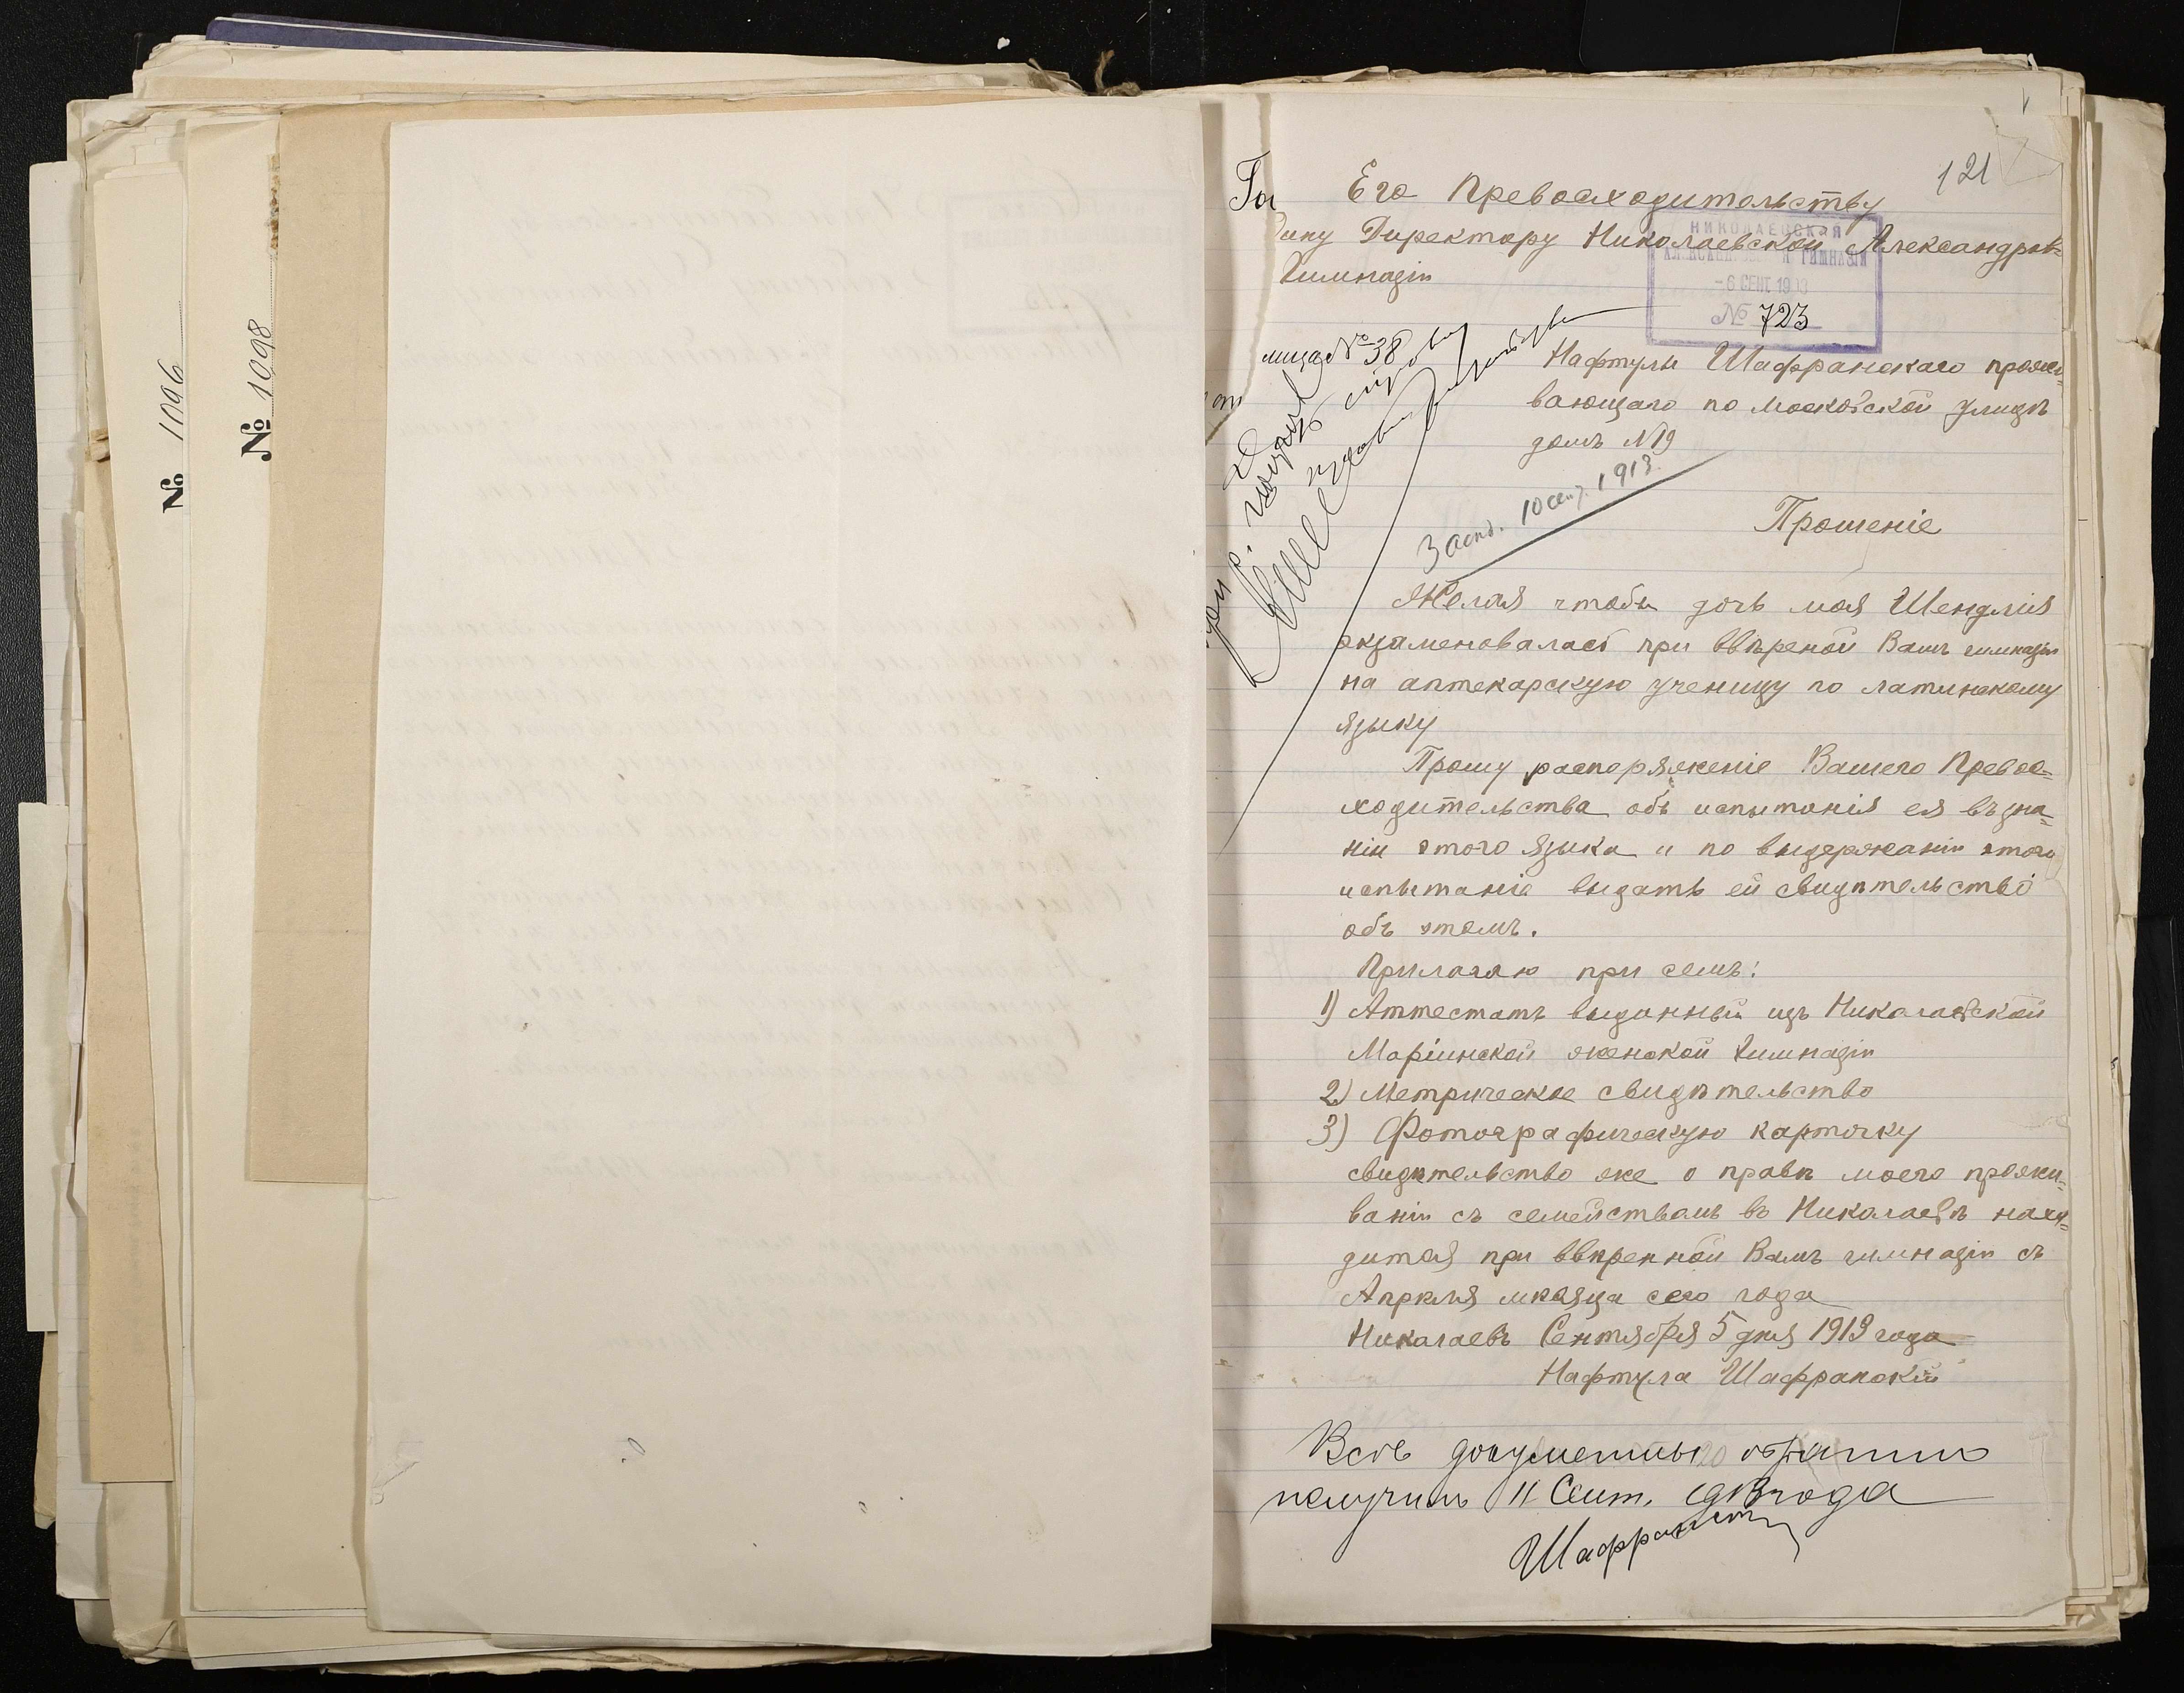 № 1096
№ 1098
121
Его Превосходительству
Директору Николаевской Александров=
Гимназіи
НИКОЛАЕВСКАЯ
АЛЕКСАНДРОВСКАЯ ГИМНАЗІЯ
-6 СЕНТ. 1913
№ 723
№ 38
Нафтулы Шафранскаго прожи=
вающаго по Московской улицѣ
домъ №19
10 сент. 1913.
Прошеніе
Желая чтобы дочь моя Шендля
экзаменовалась при ввѣреной Вамъ гимназіи
на аптекарскую ученицу по латинскому
языку
Прошу распоряженіе Вашего Превос=
ходительства объ испытанія ея въ зна=
ніи этого языка и по выдержаніи этого
испытанія выдать ей свидѣтельство
объ этомъ.
Прилагаю при семъ:
1) Аттестатъ выданный изъ Николаевской
Маріинской женской Гимназіи
2) Метрическое свидѣтельство
3) Фотографическую карточку
свидѣтельство же о правѣ моего прожи=
ваніи съ семействомъ въ Николаевѣ нахо=
дится при ввѣренной Вамъ гимназіи съ
Апрѣля мѣсяца сего года
Николаевъ Сентября 5 дня 1913 года
Нафтула Шафранскій
Всѣ документы обратно
получилъ 11 Сент. 1913 года
Шафранскій